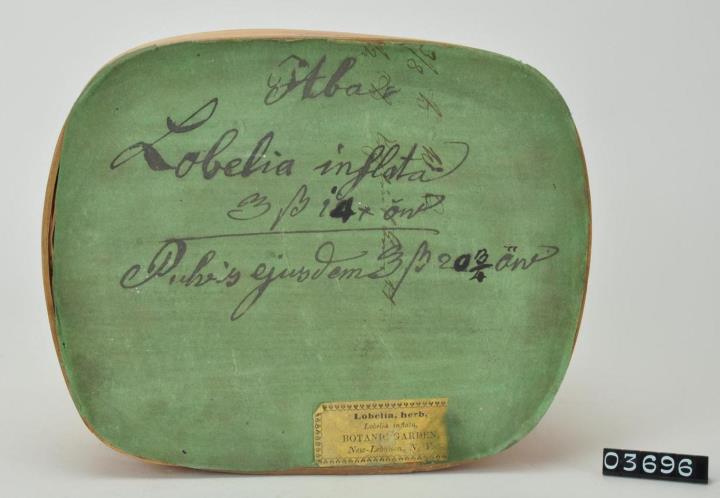 Hba
Lobelia inflata
Ʒ β 14 ÷ ön
Pulvis ejusdem Ʒ β 20 3/4 ön
Lobelia, herb.
Lobelia inflata,
BOTANIC GARDEN,
New-Lebanon, N. Y.
03696